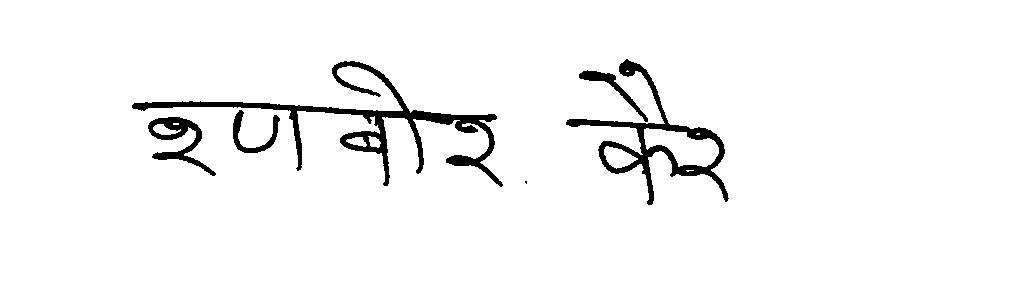 रणबीर कैर